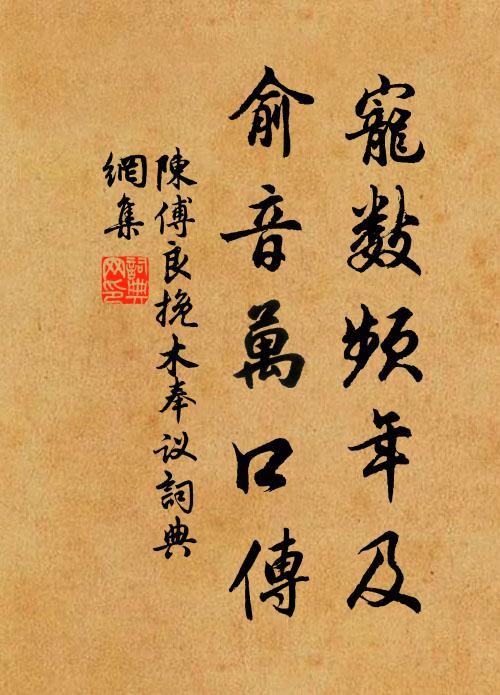 寵數頻年及
俞音萬口傳
陳傅良挽木奉议詞典
網集
詞典
网印